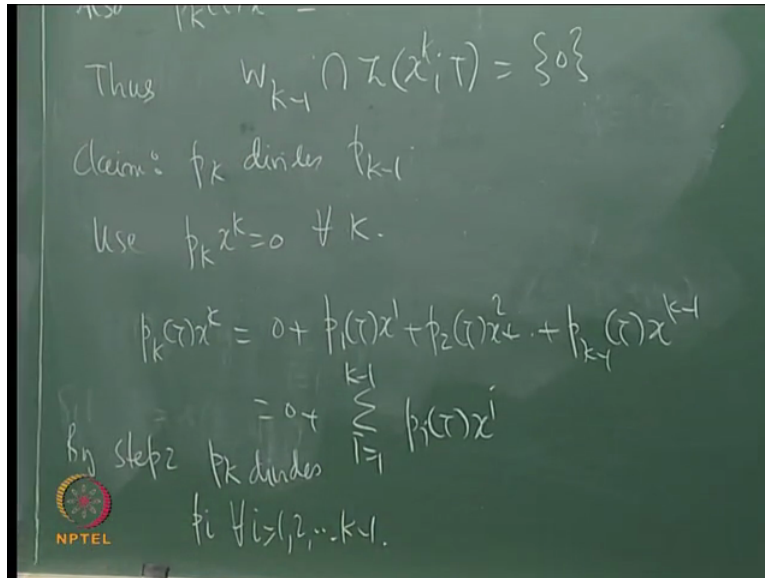 Also p_k
Thus W_{k-1} ∩ Z(x^k; T) = {0}
Claim: p_k divides p_{k-1}
Use p_k x^k = 0 ∀ k.
p_k(T)x^k = 0 + p_1(T)x^1 + p_2(T)x^2 + .. + p_{k-1}(T)x^{k-1}
= 0 + \sum_{i=1}^{k-1} p_i(T)x^i
By step 2 p_k divides
p_i ∀ i=1,2,...k-1.
NPTEL